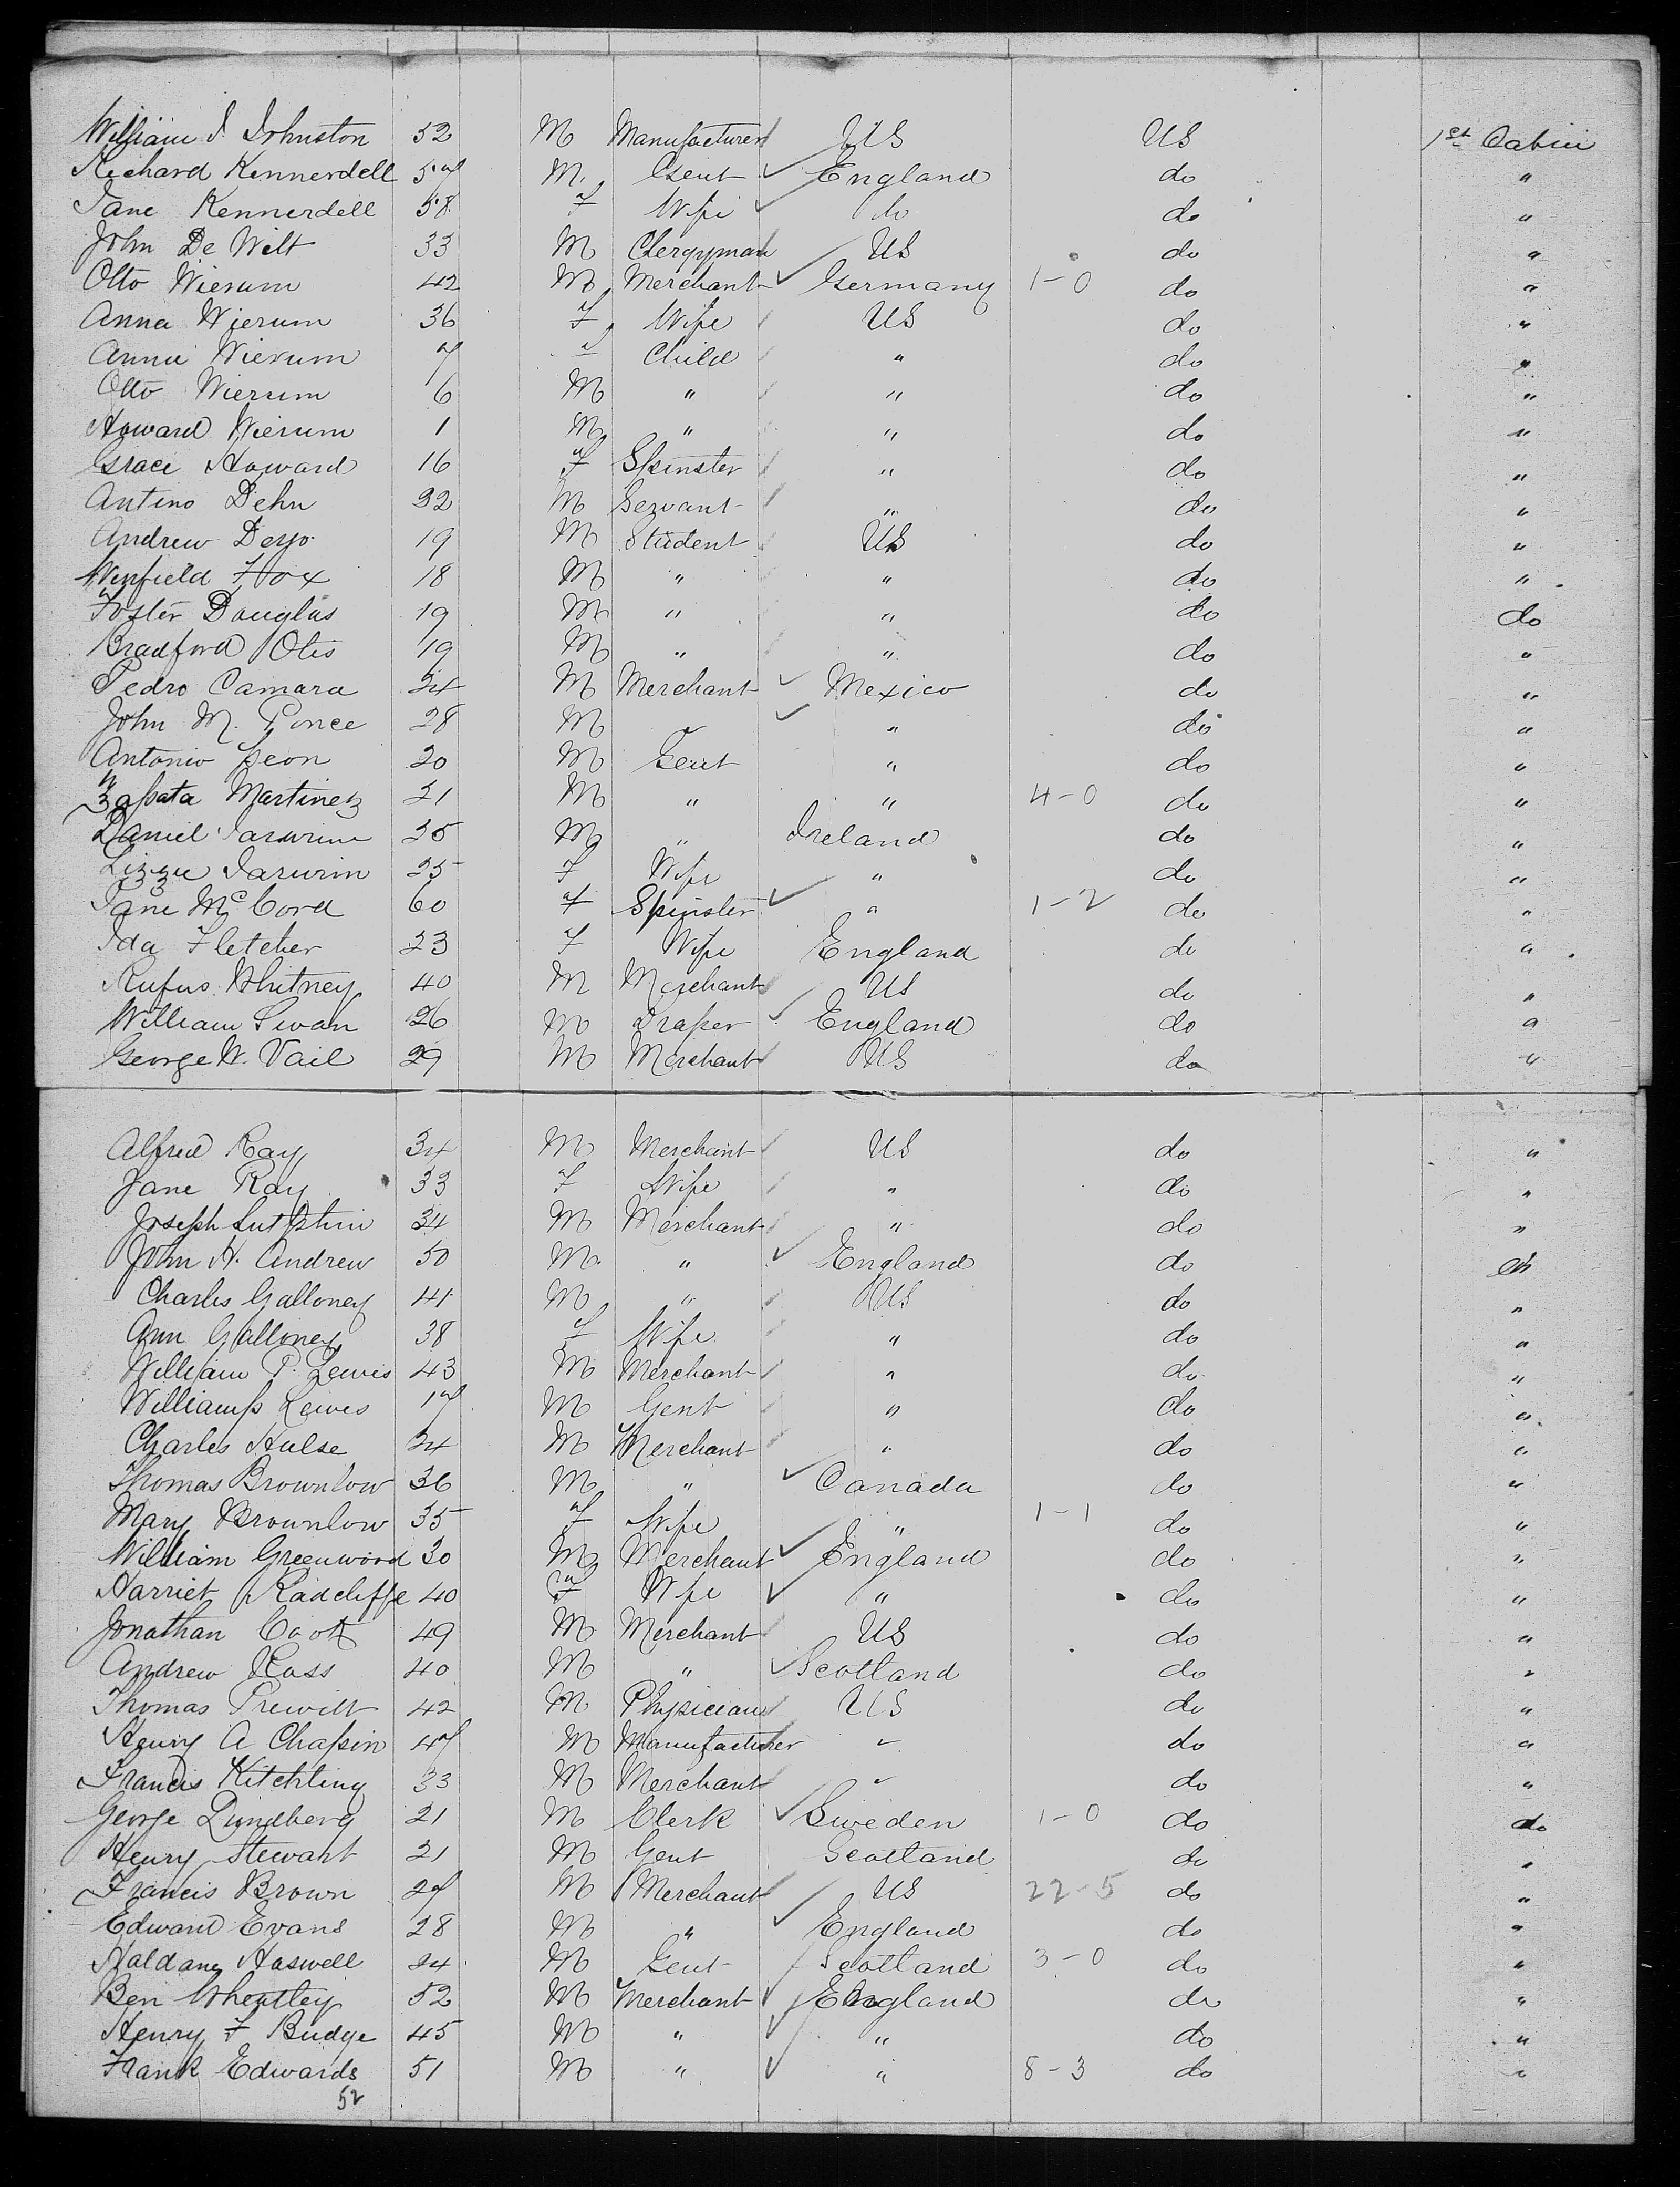 William J. Johnston 52 M Manufacturer US US 1st Cabin
Richard Kennerdell 57 M. Gent England do "
Jane Kennerdell 58 F Wife do do "
John De Witt 33 M Clergyman US do "
Otto Wierum 42 M Merchant Germany 1-0 do "
Anna Wierum 36 F Wife US do "
Annie Wierum 7 F Child " do "
Otto Wierum 6 M " " do "
Howard Wierum 1 M " " do "
Grace Howard 16 F Spinster " do "
Antino Dehn 32 M Servant " do "
Andrew Deyo 19 M Student US do "
Winfield Fox 18 M " " do "
Foster Douglas 19 M " " do do
Bradford Otis 19 M " " do "
Pedro Camara 24 M Merchant Mexico do "
John M. Ponce 28 M " " do "
Antonio Leon 20 M Gent " do "
Zapata Martinez 21 M " " 4-0 do "
Daniel 35 M " Ireland do "
Lizzie 25 F Wife " do "
Jane McCord 60 F Spinster " 1-2 do "
Ida Fletcher 23 F Wife England do "
Rufus Whitney 40 M Merchant US do "
William Swan 26 M Draper England do "
George W. Vail 29 M Merchant US do "
Alfred Ray 34 M Merchant US do "
Jane Ray 33 F Wife " do "
Joseph 34 M Merchant " do "
John H. Andrew 50 M. " England do do
Charles Galloney 41 M " US do "
Ann Galloney 38 F Wife " do "
William P. Lewis 43 M Merchant " do "
William Lewis 17 M Gent " do "
Charles Hulse 34 M Merchant " do "
Thomas Brownlow 36 M " Canada do "
Mary Brownlow 35 F Wife " 1-1 do "
William Greenwood 30 M Merchant England do "
Harriet Radcliffe 40 F Wife " do "
Jonathan Cook 49 M Merchant US do "
Andrew Ross 40 M " Scotland do "
Thomas Prewitt 42 M Physician US do "
Henry A Chapin 47 M Manufacturer " do "
Francis Kitchling 33 M Merchant " do "
George Lundberg 21 M Clerk Sweden 1-0 do do
Henry Stewart 21 M Gent Scotland do "
Francis Brown 27 M Merchant US 22-5 do "
Edward Evans 28 M " England do "
Haldane Haswell 24 M Gent Scotland 3-0 do "
Ben Wheatley 52 M Merchant England do "
Henry F Budge 45 M " " do "
Frank Edwards 51 M " " 8-3 do "
52